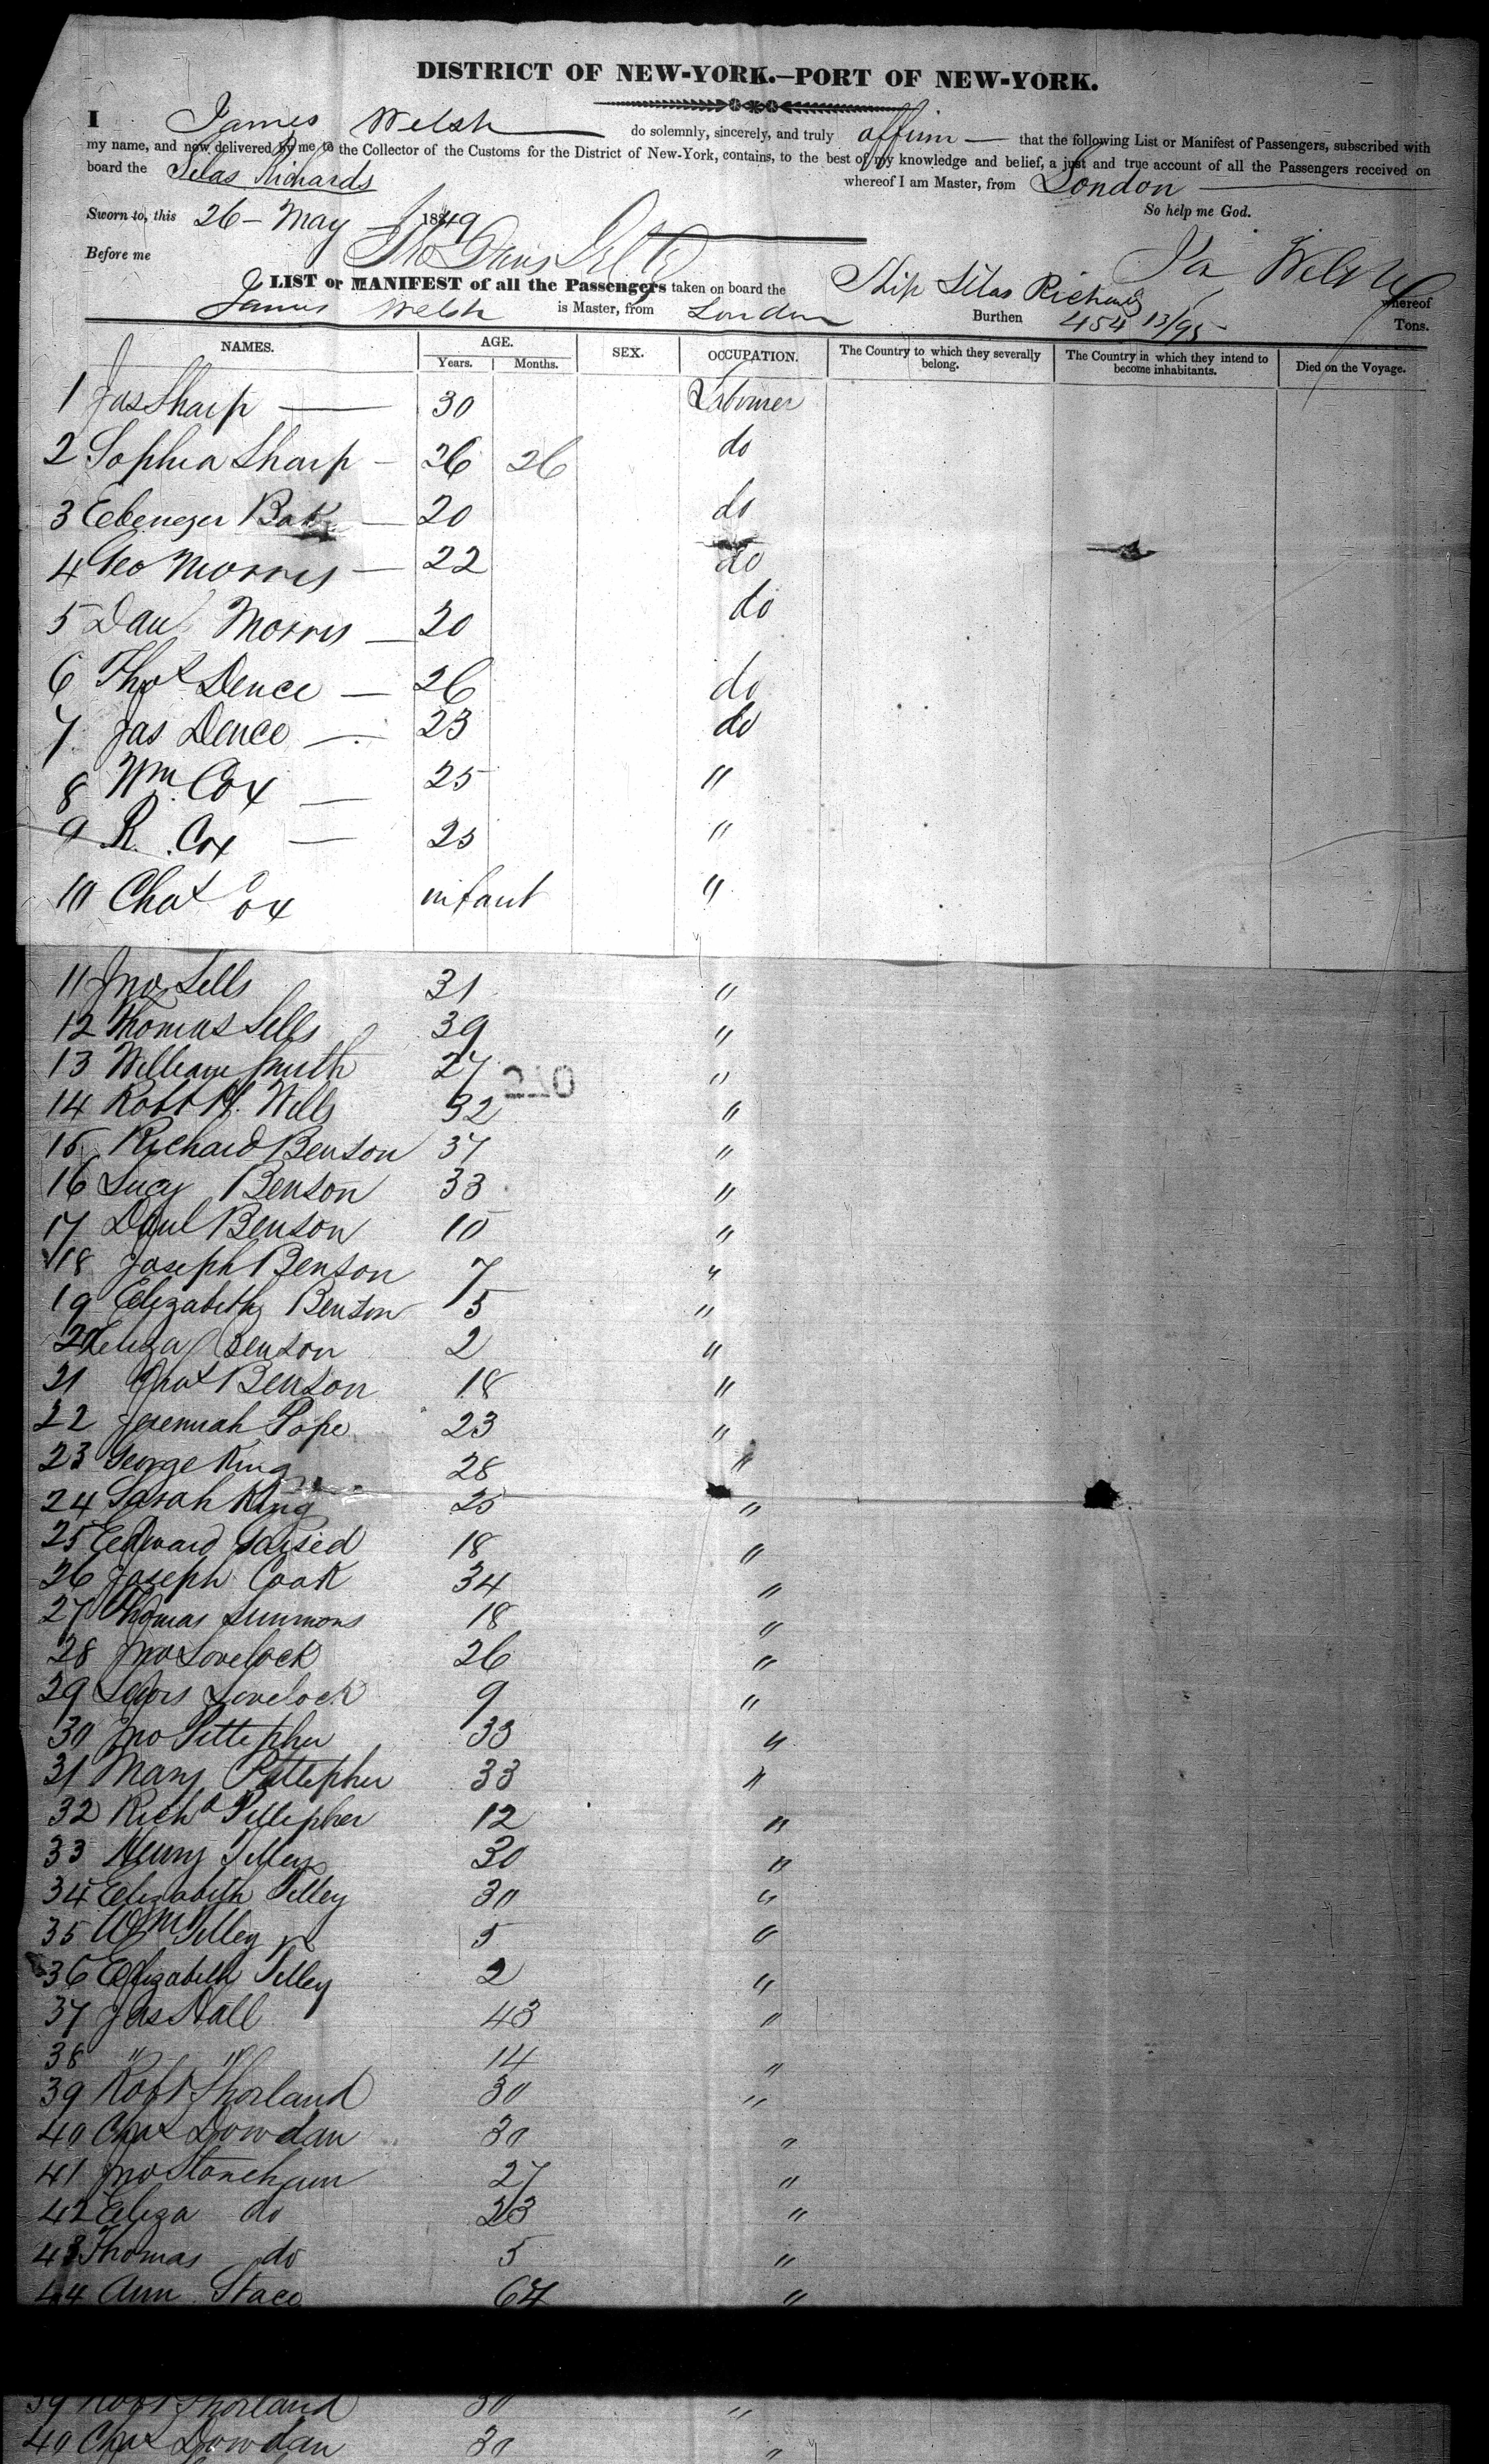 DISTRICT OF NEW-YORK.—PORT OF NEW-YORK.
I James Welsh do solemnly, sincerely, and truly affirm that the following List or Manifest of Passengers, subscribed with
my name, and now delivered by me to the Collector of the Customs for the District of New-York, contains, to the best of my knowledge and belief, a just and true account of all the Passengers received on
board the Silas Richards whereof I am Master, from London
Sworn to, this 26 - May 1849 So help me God.
Before me Ja Welsh
LIST or MANIFEST of all the Passengers taken on board the Ship Silas Richards whereof
James Welsh is Master, from London Burthen 454 13/95 Tons.
NAMES. AGE. SEX. OCCUPATION. The Country to which they severally belong. The Country in which they intend to become inhabitants. Died on the Voyage.
Years. Months.
1 Jas Sharp 30 Labourer
2 Sophia Sharp 26 26 do
3 Ebenezer 20 do
4 Geo Morris 22 do
5 Danl Morris 20 do
6 Thos Dence 26 do
7 Jas Dence 23 do
8 Wm Cox 25 "
9 R. Cox 25 "
10 Chas Cox infant "
11 Jno Sells 31 "
12 Thomas Sells 39 "
13 William Smith 27 "
270
14 Robt H. Wells 32 "
15 Richard Benson 37 "
16 Lucy Benson 33 "
17 Danl Benson 10 "
18 Joseph Benson 7 "
19 Elizabeth Benson 5 "
20 Eliza Benson 2 "
21 Benson 18 "
22 Jeremiah Pope 23 "
23 George King 28 "
24 Sarah King 25 "
25 Edward 18 "
26 Joseph Cook 34 "
27 Thomas Simmons 18 "
28 Jno Lovelock 26 "
29 Lewis Lovelock 9 "
30 Jno Pettepher 33 "
31 Mary Pettepher 33 "
32 Richd Pettepher 12 "
33 Henry Tilley 30 "
34 Elizabeth Tilley 30 "
35 Wm Tilley 5 "
36 Elizabeth Tilley 2 "
37 Jas Hall 43 "
38 " " 14 "
39 Robt Thorland 30 "
40 Chas Dowdan 30 "
41 Jno Stoneham 27 "
42 Eliza do 23 "
43 Thomas do 5 "
44 Ann Stace 64 "
39 Robt Thorland 30 "
40 Chas Dowdan 30 "